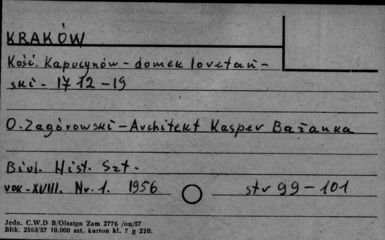 KRAKÓW
Kość. Kapucynów - domek loretań -
ski - 1712 - 19
O. Zagórowski - Architekt Kasper Bażanka
Biul. Hist. Szt.
rok - XVIII. Nr. 1. 1956 str 99 - 101
Jedn. C.W.D B/Olsztyn Zam 2776 /on/57
Bltk. 2563/57 10.000 szt. karton kl. 7 g 220.